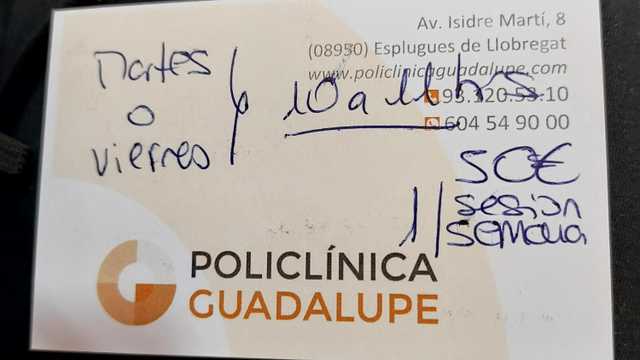 Av. Isidre Martí, 8
(08950) Esplugues de Llobregat
www.policlinicaguadalupe.com
93.320.53.10
604 54 90 00
Martes
o
viernes
10 a 11 hrs
50€
1/sesion
semana
POLICLÍNICA
GUADALUPE